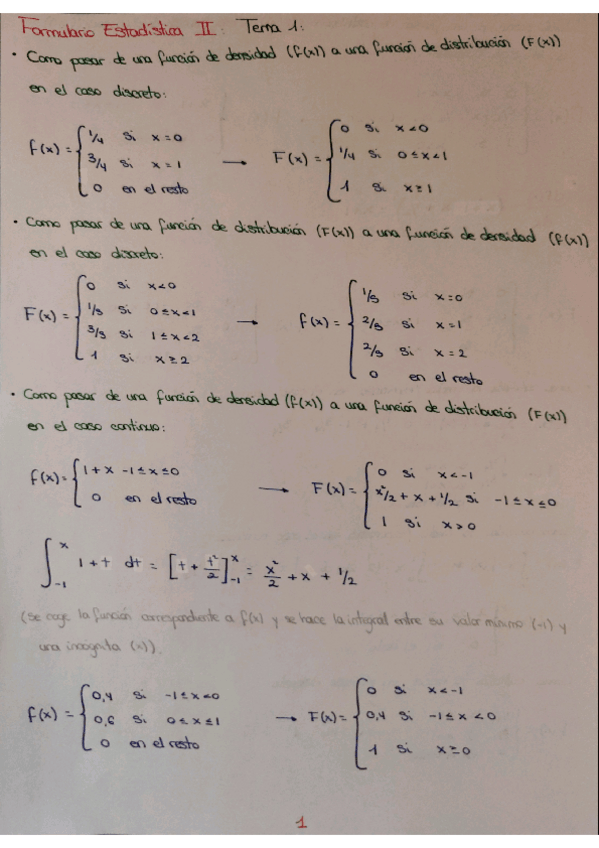 Formulario Estadística II: Tema 1:
• Como pasar de una función de densidad (f(x)) a una función de distribución (F(x))
en el caso discreto:
f(x) = { 1/4 si x=0 → F(x) = { 0 si x<0
3/4 si x=1 1/4 si 0≤x<1
0 en el resto 1 si x≥1
• Como pasar de una función de distribución (F(x)) a una función de densidad (f(x))
en el caso discreto:
F(x) = { 0 si x<0 → f(x) = { 1/5 si x=0
1/5 si 0≤x<1 2/5 si x=1
3/5 si 1≤x<2 2/5 si x=2
1 si x≥2 0 en el resto
• Como pasar de una función de densidad (f(x)) a una función de distribución (F(x))
en el caso continuo:
f(x) = { 1+x -1≤x≤0 → F(x) = { 0 si x<-1
0 en el resto x²/2 + x + 1/2 si -1≤x≤0
1 si x>0
∫_{-1}^{x} 1+t dt = [t + t²/2]_{-1}^{x} = x²/2 + x + 1/2
(Se coge la función correspondiente a f(x) y se hace la integral entre su valor mínimo (-1) y
una incógnita (x)).
f(x) = { 0,4 si -1≤x<0 → F(x) = { 0 si x<-1
0,6 si 0≤x≤1 0,4 si -1≤x<0
0 en el resto 1 si x≥0
1